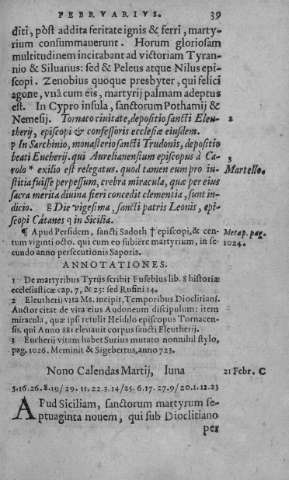 FEBRVARIVS. 39
diti, pòst addita feritate ignis & ferri, marty-
rium consummauerunt. Horum gloriosam
multitudinem incitabant ad victoriam Tyran-
nio & Siluanus: sed & Peleus atque Nilus epi-
scopi. Zenobius quoque presbyter, qui felici
agone, vnà cum eis, martyrij palmam adeptus
est. In Cypro insula, sanctorum Pothamij &
Nemesij. Tornaco ciuitate, depositio sancti Eleu- 2
therij, episcopi & confessoris ecclesiæ eiusdem.
p In Sarchinio, monasterio sancti Trudonis, depositio
beati Eucherij. qui Aurelianensium episcopus à Ca- 3
rolo * exilio est relegatus. quod tamen eum pro iu- Martello.
stitia fuisse perpessum, crebra miracula, quæ per eius
sacra merita diuina fieri concedit clementia, sunt in-
dicio. E Die vigesima, sancti patris Leonis, epi-
scopi Cátanes q in Sicilia.
¶ Apud Persidem, sancti Sadoth † episcopi, & cen- Metap. pag.
tum viginti octo. qui cum eo subiêre martyrium, in se- 1024.
cundo anno persecutionis Saporis.
ANNOTATIONES.
1 De martyribus Tyrijs scribit Eusebius lib. 8 historiæ
ecclesiasticæ cap. 7, & 25: sed Rufini 14.
2 Eleutherij vita Ms. incipit, Temporibus Diocletiani.
Auctor citat de vita eius Audoneum discipulum: item
miracula, quæ ipsi retulit Heidilo episcopus Tornacen-
sis. qui Anno 881 eleuauit corpus sancti Eleutherij.
3 Eucherij vitam habet Surius mutato nonnihil stylo,
pag. 1026. Meminit & Sigebertus, anno 723.
Nono Calendas Martij, Luna 21 Febr. C
5.16.26.8.19/29.11.22.3.14/25.6.17.27.9/20.1.12.23
APud Siciliam, sanctorum martyrum se-
ptuaginta nouem, qui sub Dioclitiano
per